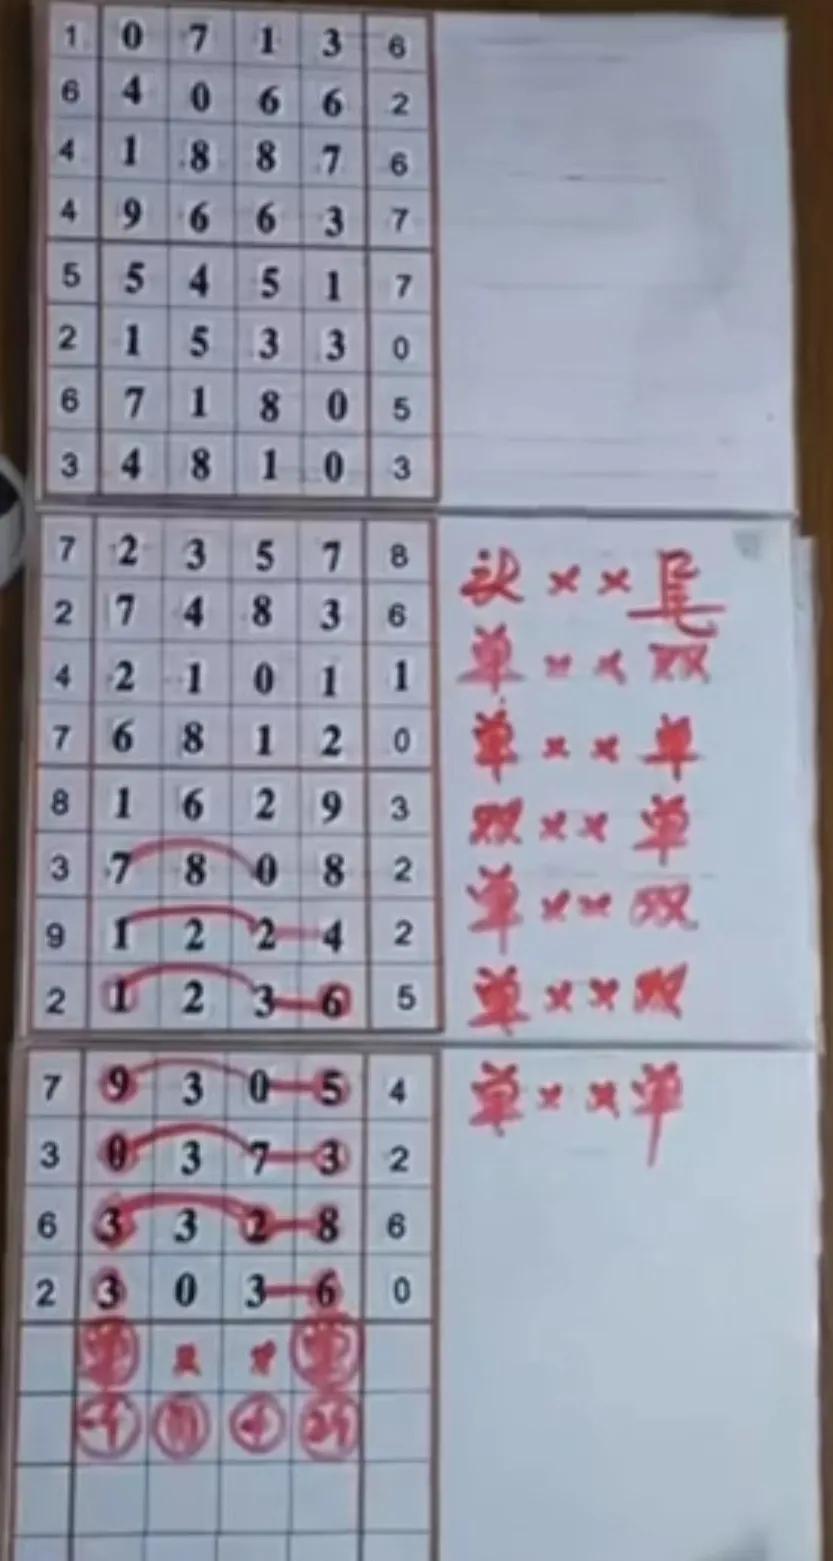 1 0 7 1 3 6
6 4 0 6 6 2
4 1 8 8 7 6
4 9 6 6 3 7
5 5 4 5 1 7
2 1 5 3 3 0
6 7 1 8 0 5
3 4 8 1 0 3
7 2 3 5 7 8 头 × × 尾
2 7 4 8 3 6 单 × × 双
4 2 1 0 1 1
7 6 8 1 2 0 单 × × 单
8 1 6 2 9 3 双 × × 单
3 7 8 0 8 2
9 1 2 2 4 2 单 × × 双
2 1 2 3 6 5 单 × × 双
7 9 3 0 5 4 单 × × 单
3 0 3 7 3 2
6 3 3 2 8 6
2 3 0 3 6 0
单 × × 单